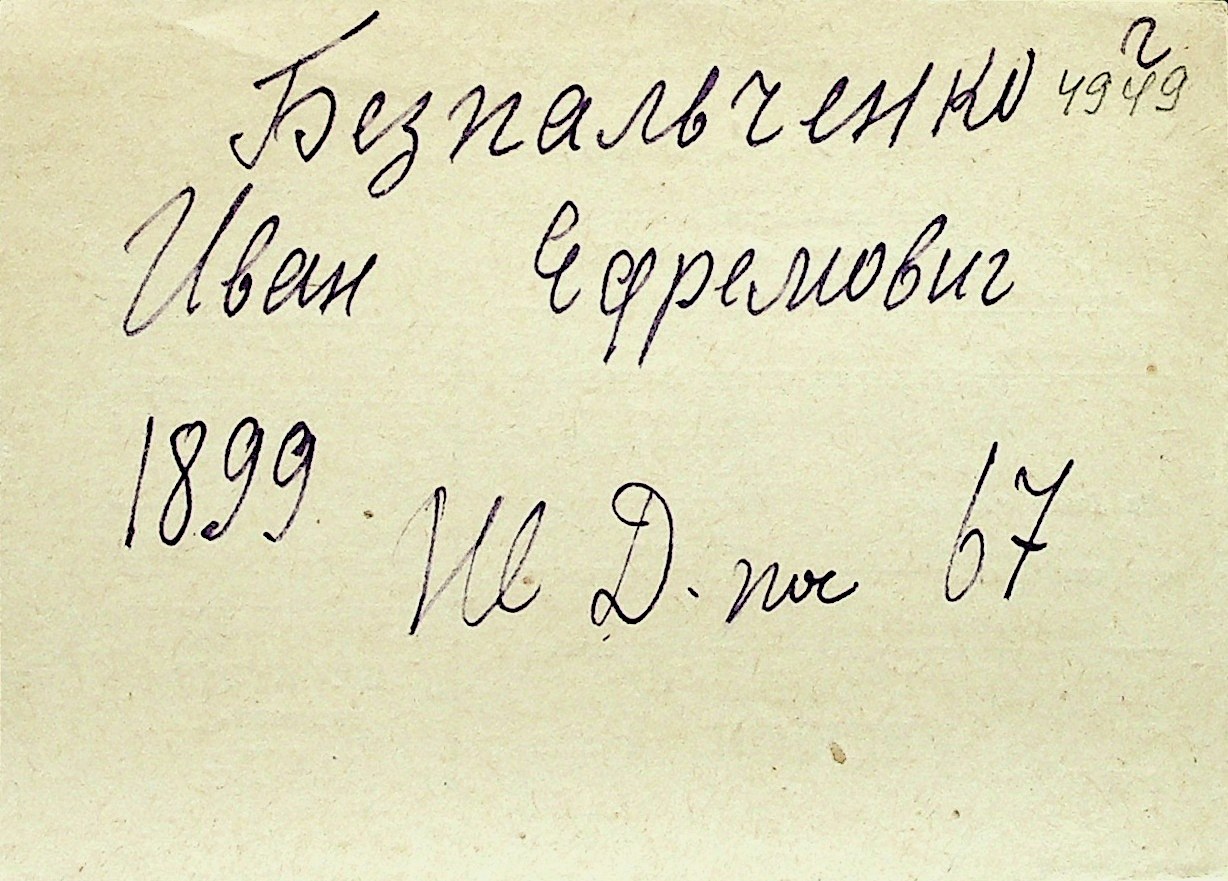 Безпальченко 4949 г
Иван Ефремович
1899 Ж Д. пос 67